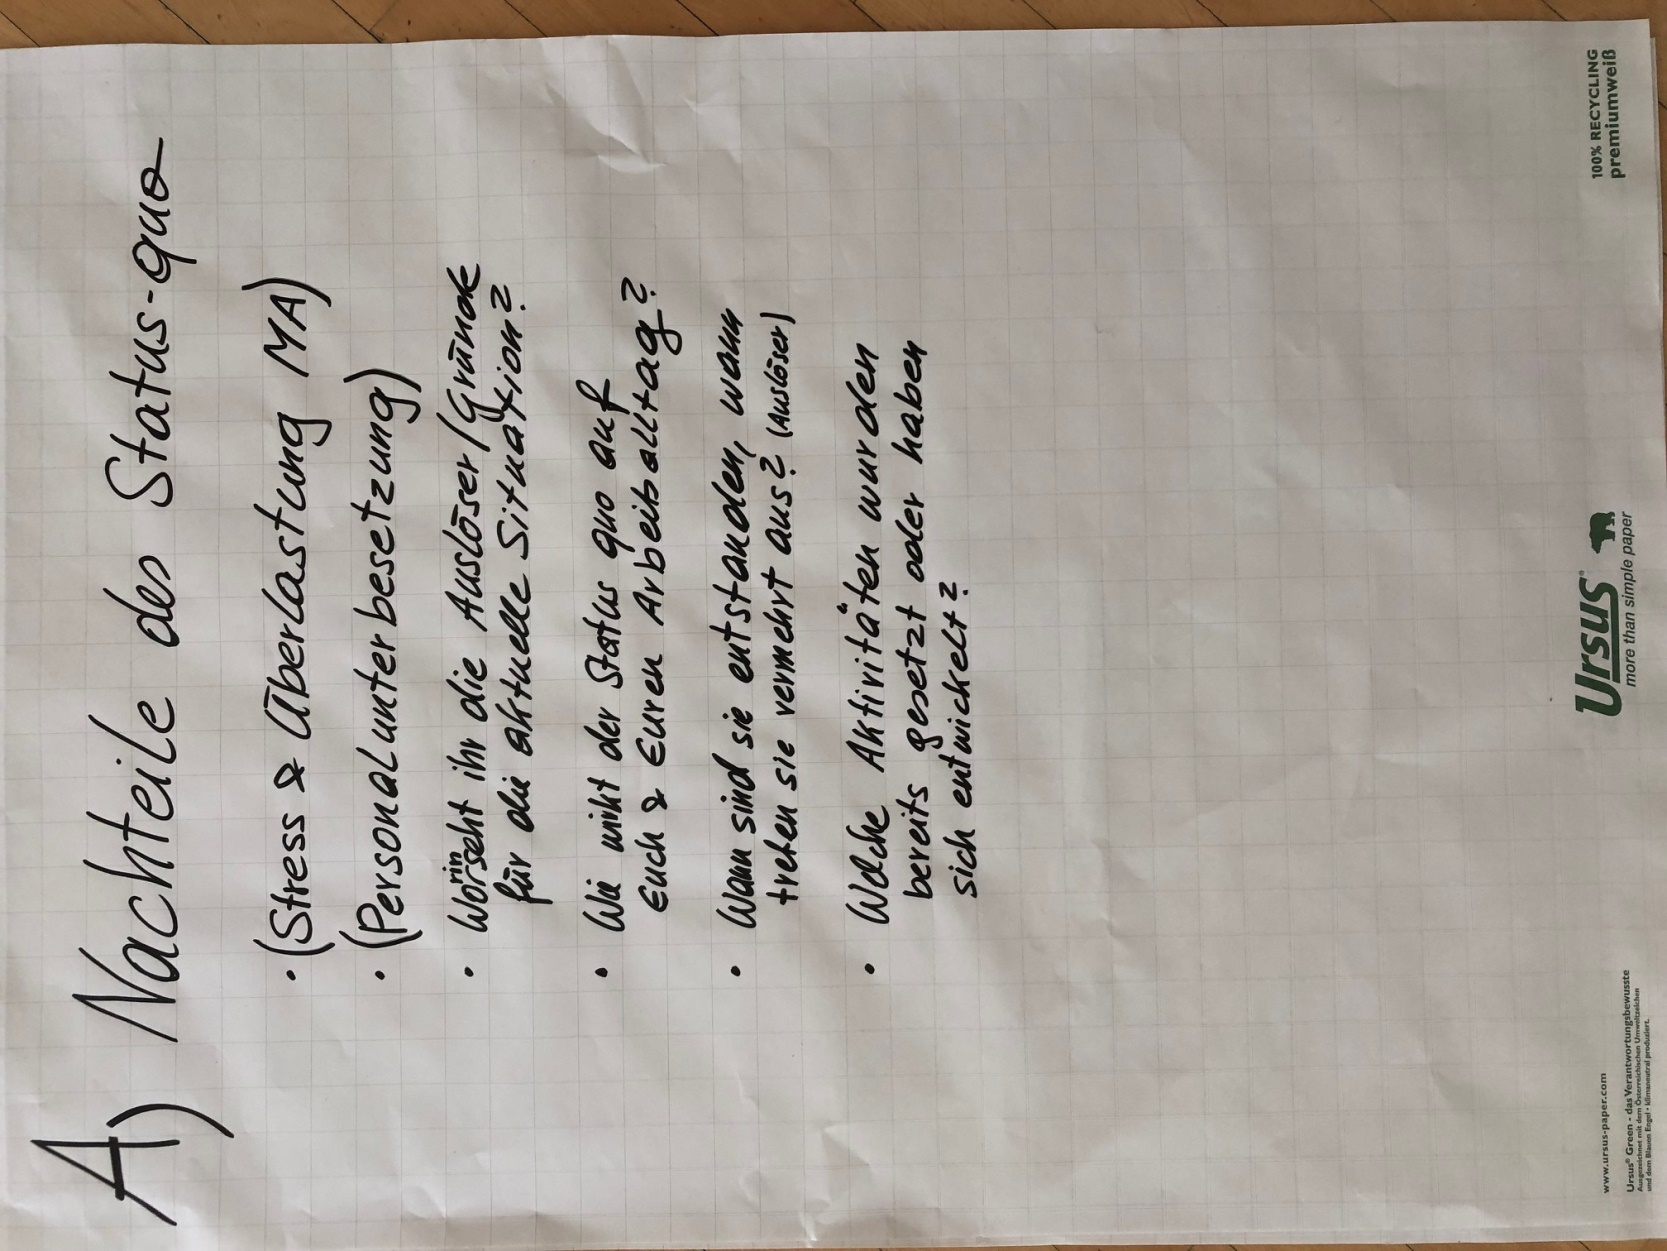 A) Nachteile des Status-quo
• (Stress & Überlastung MA)
• (Personalunterbesetzung)
• Worin seht ihr die Auslöser/Gründe
für die aktuelle Situation?
• Wie wirkt der Status quo auf
Euch & Euren Arbeitsalltag?
• Wann sind sie entstanden, wann
treten sie vermehrt aus? (Auslöser)
• Welche Aktivitäten wurden
bereits gesetzt oder haben
sich entwickelt?
www.ursus-paper.com
Ursus® Green - das Verantwortungsbewusste
Ausgezeichnet mit dem Österreichischen Umweltzeichen
und dem Blauen Engel • klimaneutral produziert.
Ursus®
more than simple paper
100% RECYCLING
premiumweiß